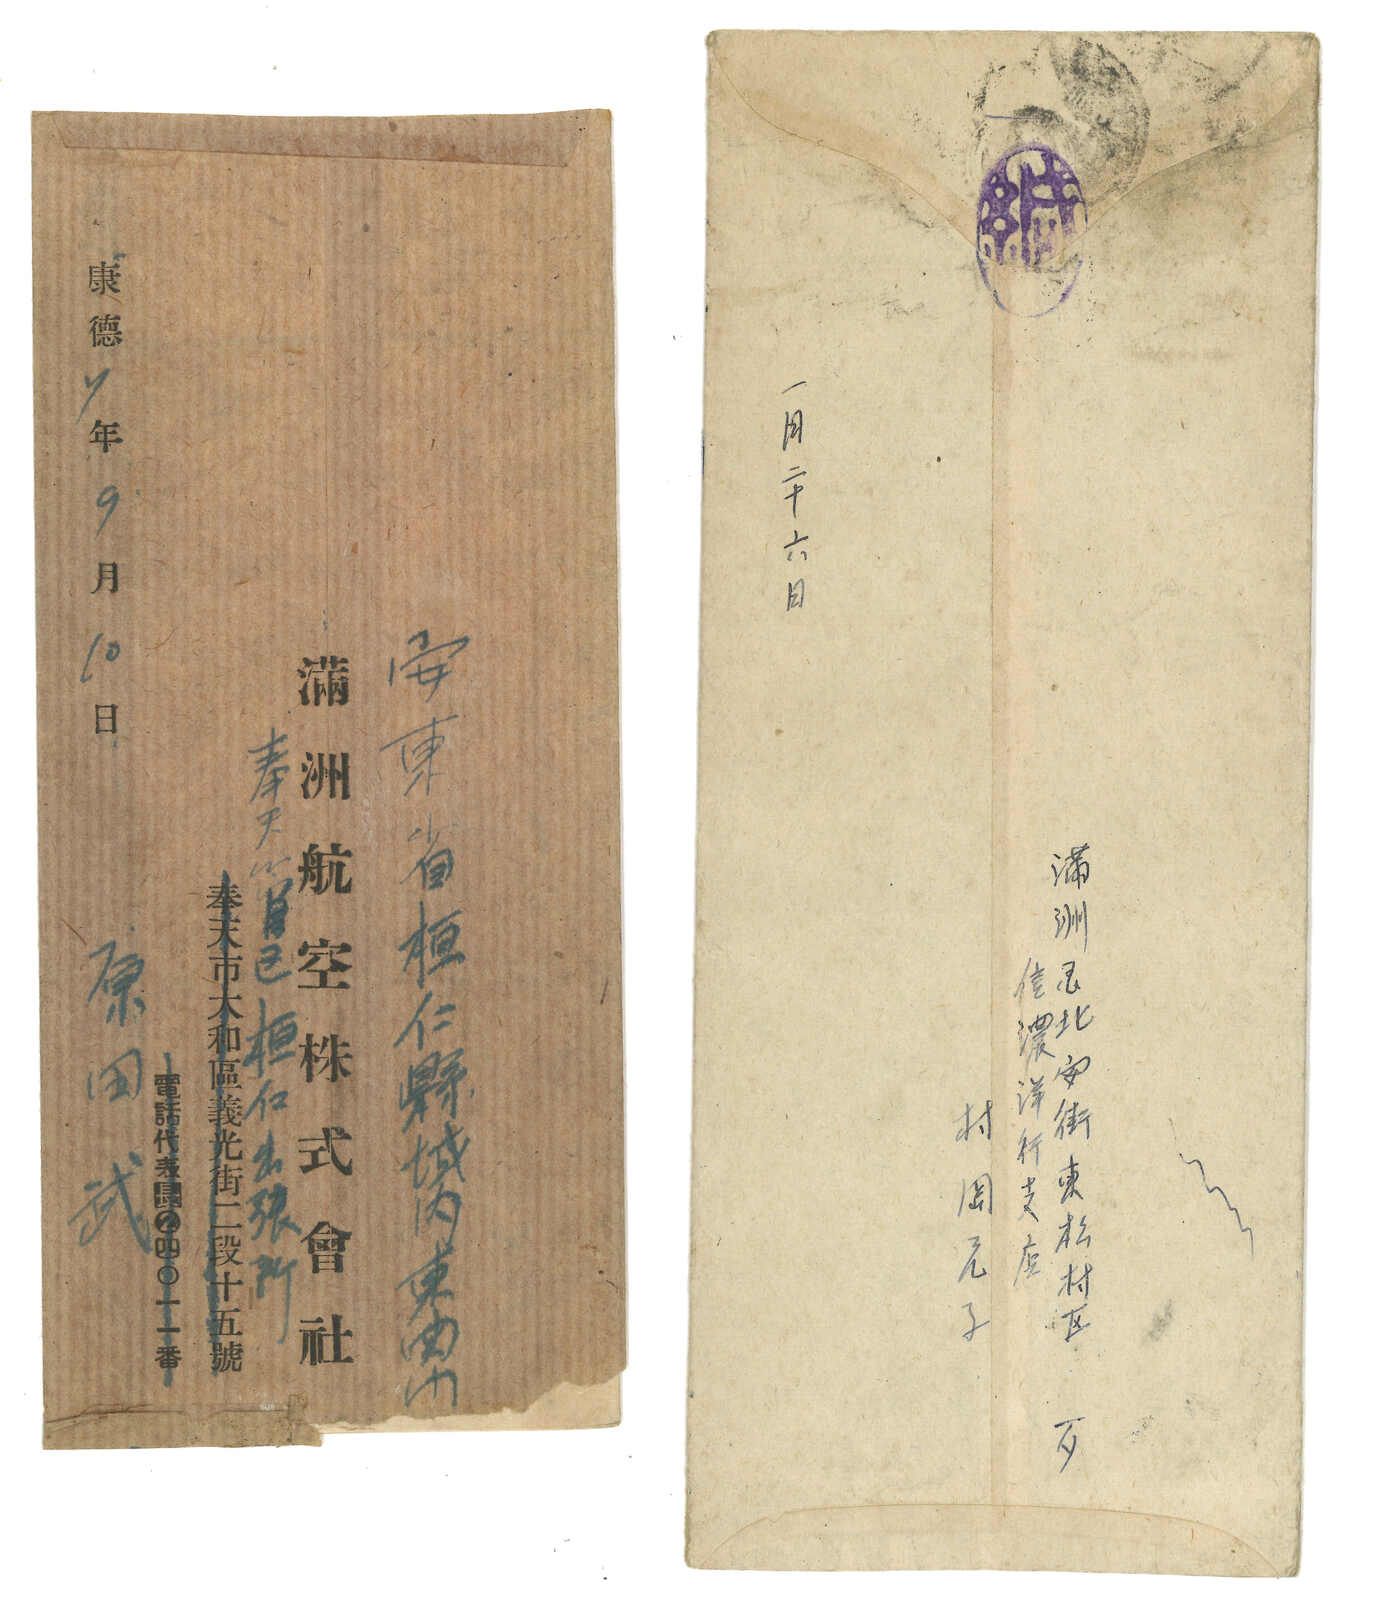 安東省桓仁縣城内東関
滿洲航空株式會社
奉天管区桓仁出張所
奉天市大和區義光街二段十五號
電話代表長②四〇一一番
原田武
康德7年9月10日
緘
滿洲国北安街東松村区
信濃洋行支店
村岡元子
一月二十六日